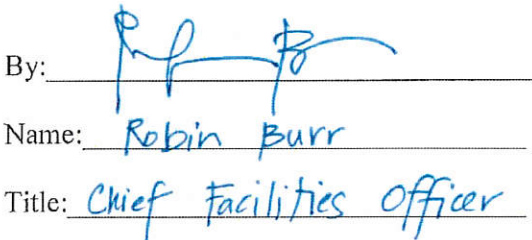 By:
Name: Robin Burr
Title: Chief Facilities Officer